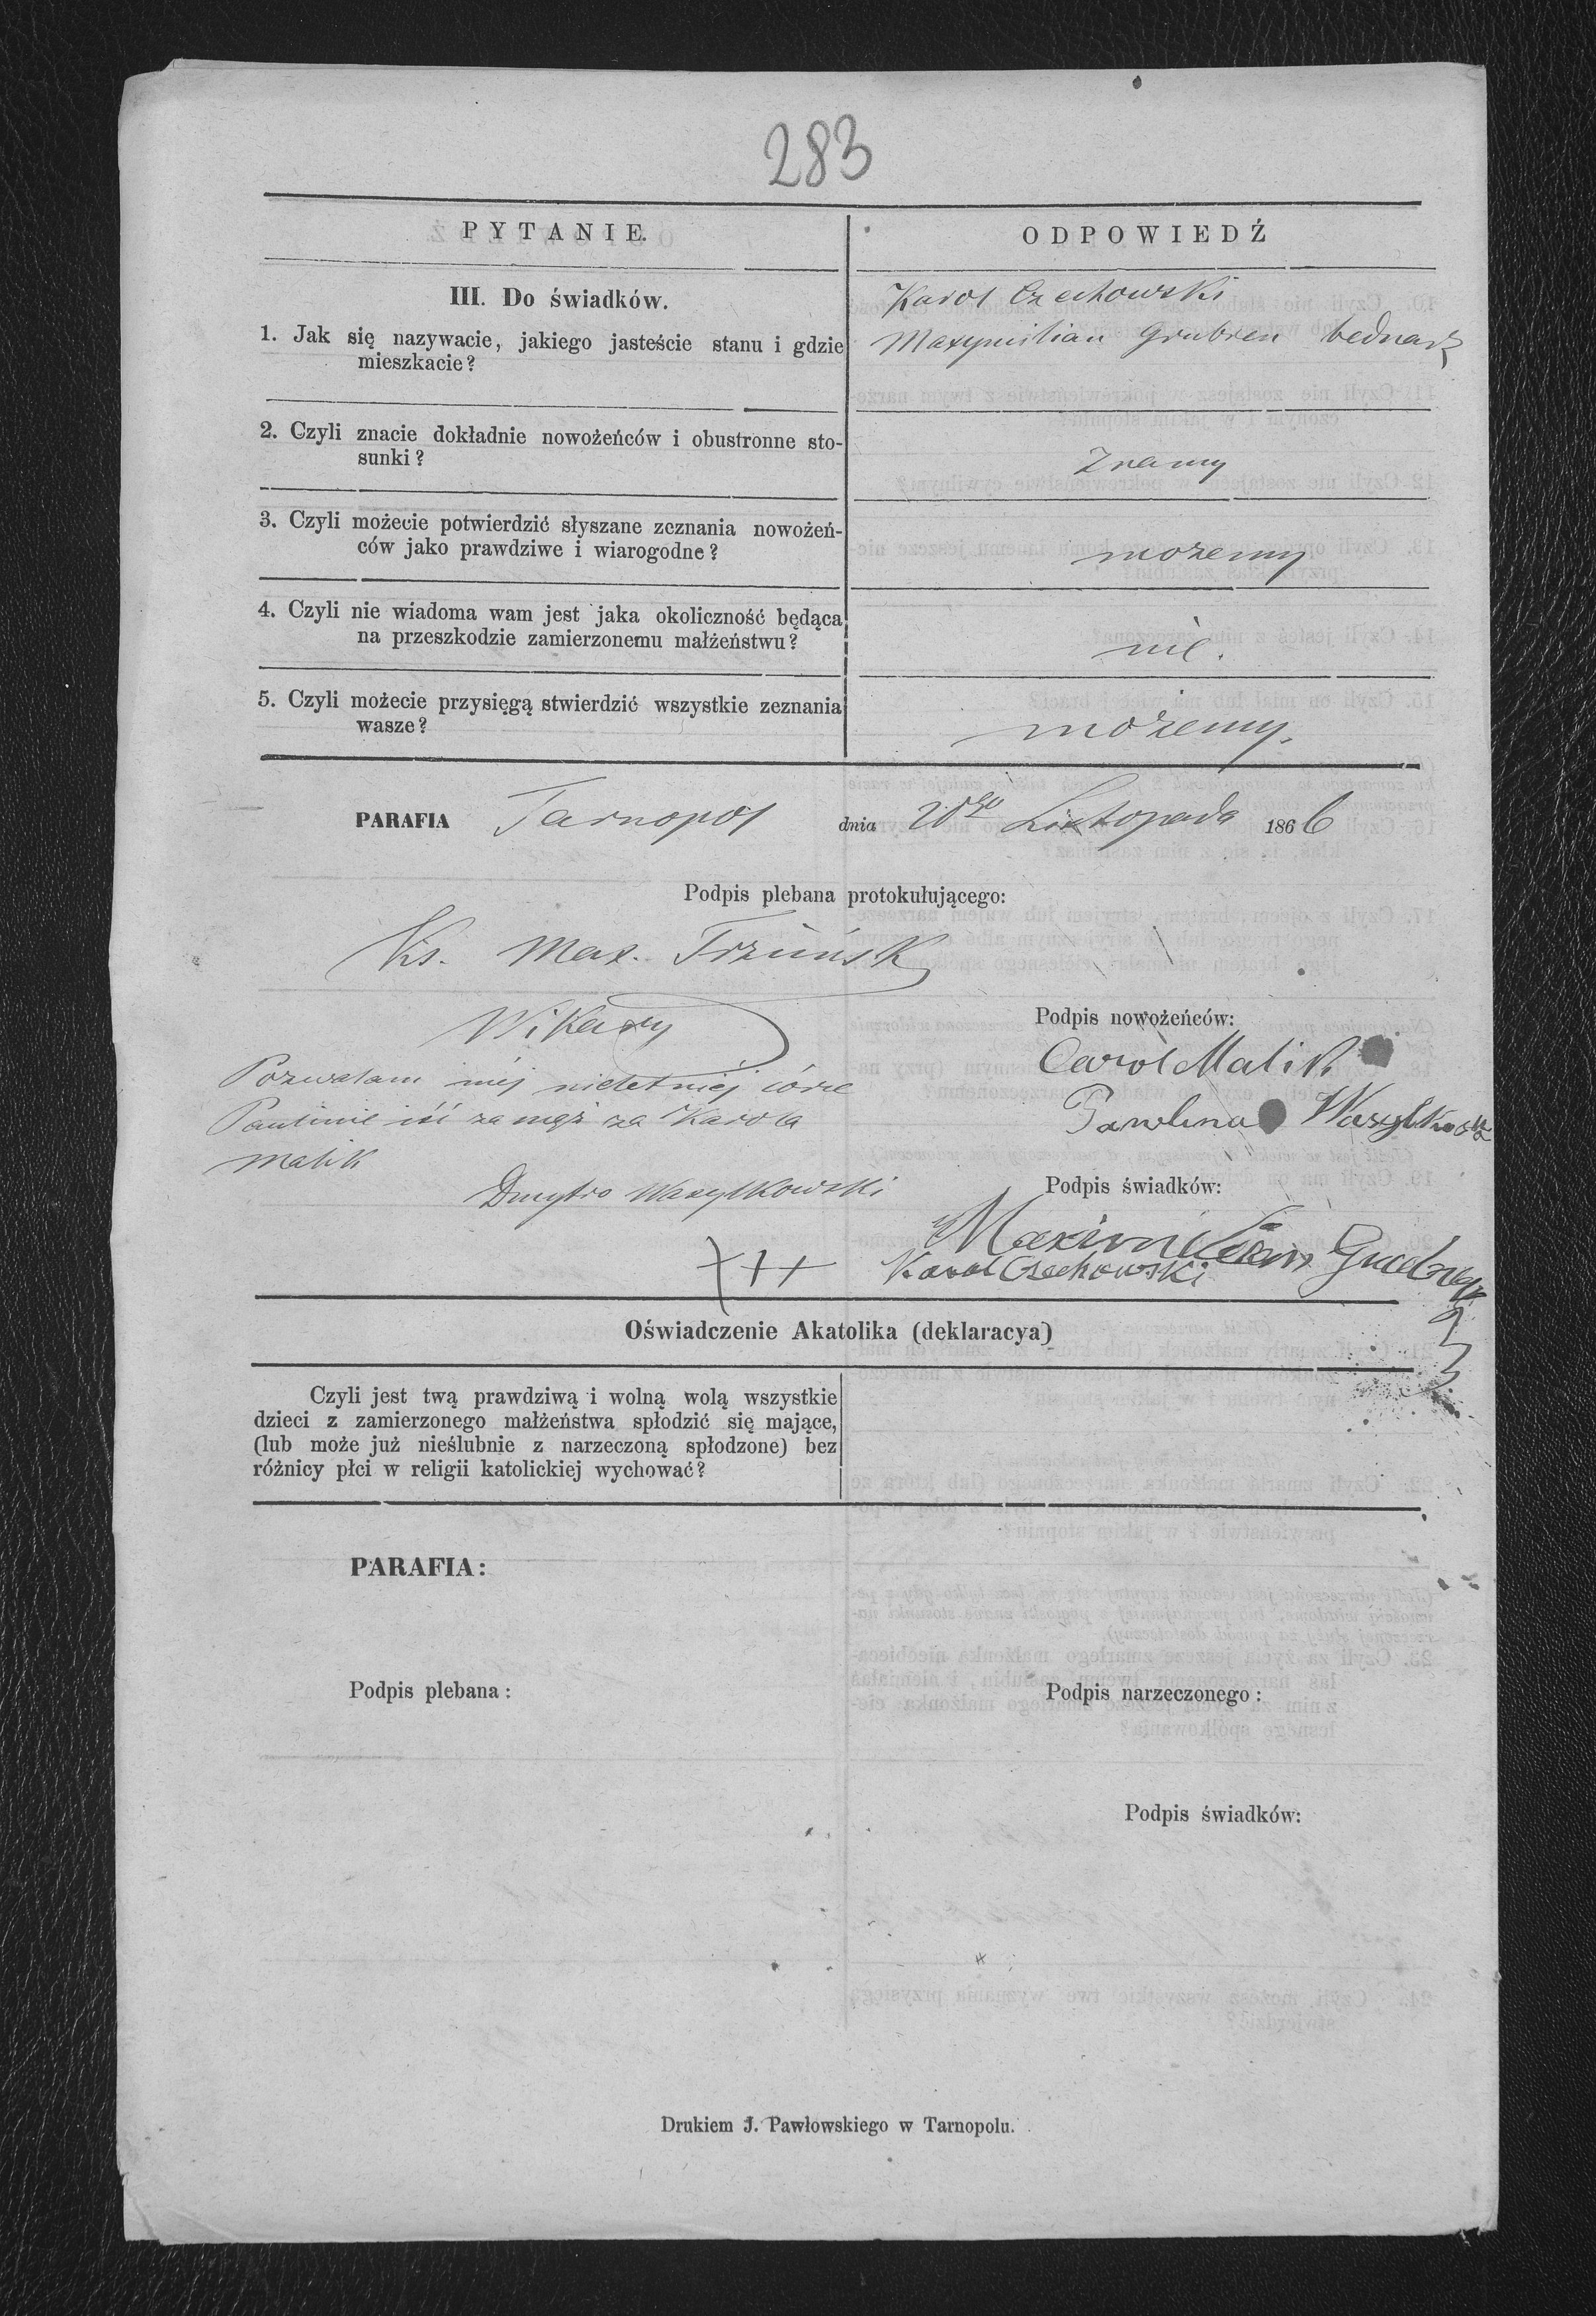 283
PYTANIE.
ODPOWIEDŹ
III. Do świadków.
1. Jak się nazywacie, jakiego jasteście stanu i gdzie
mieszkacie?
Karol Czechowski
Maxymilian Grubren bednarz
2. Czyli znacie dokładnie nowożeńców i obustronne sto-
sunki?
Znamy
3. Czyli możecie potwierdzić słyszane zeznania nowożeń-
ców jako prawdziwe i wiarogodne?
możemy
4. Czyli nie wiadoma wam jest jaka okoliczność będąca
na przeszkodzie zamierzonemu małżeństwu?
nie.
5. Czyli możecie przysięgą stwierdzić wszystkie zeznania
wasze?
możemy.
PARAFIA Tarnopol dnia 20go Listopada 1866
Podpis plebana protokułującego:
Ks. Max.
Wikary
Podpis nowożeńców:
Carol Malik
Pawlina Wasylkowska
Pozwalam méj nieletniéj córce
Paulinie iść za mąż za Karola
Malik
Dmytro Wasylkowski
+++
Podpis świadków:
Maximilian
Karol Czechowski
Oświadczenie Akatolika (deklaracya)
Czyli jest twą prawdziwą i wolną wolą wszystkie
dzieci z zamierzonego małżeństwa spłodzić się mające,
(lub może już nieślubnie z narzeczoną spłodzone) bez
różnicy płci w religii katolickiej wychować?
PARAFIA:
Podpis plebana:
Podpis narzeczonego:
Podpis świadków:
Drukiem J. Pawłowskiego w Tarnopolu.